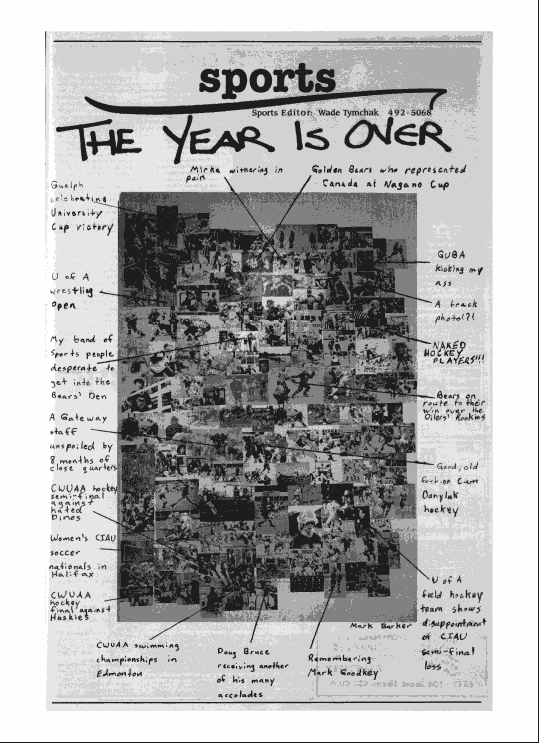 sports
Sports Editor: Wade Tymchak 492-5068
THE YEAR IS OVER
Mirka withering in
pain
Golden Bears who represented
Canada at Nagano Cup
Guelph
celebrating
University
Cup victory
GUBA
kicking my
ass
U of A
wrestling
Open
A track
photo!?!
My band of
Sports people
desperate to
get into the
Bears' Den
NAKED
HOCKEY
PLAYERS!!!
Bears on
route to their
win over the
Oilers' Rookies
A Gateway
staff
unspoiled by
8 months of
close quarters
Good, old
fashion Cam
Danyluk
hockey
CWUAA hockey
semi-final
against
hated
Dinos
Women's CIAU
soccer
nationals in
Halifax
CWUAA
hockey
final against
Huskies
U of A
field hockey
team shows
disappointment
of CIAU
semi-final
loss
Mark Barker
CWUAA swimming
championships in
Edmonton
Doug Bruce
receiving another
of his many
accolades
Remembering
Mark Goodkey